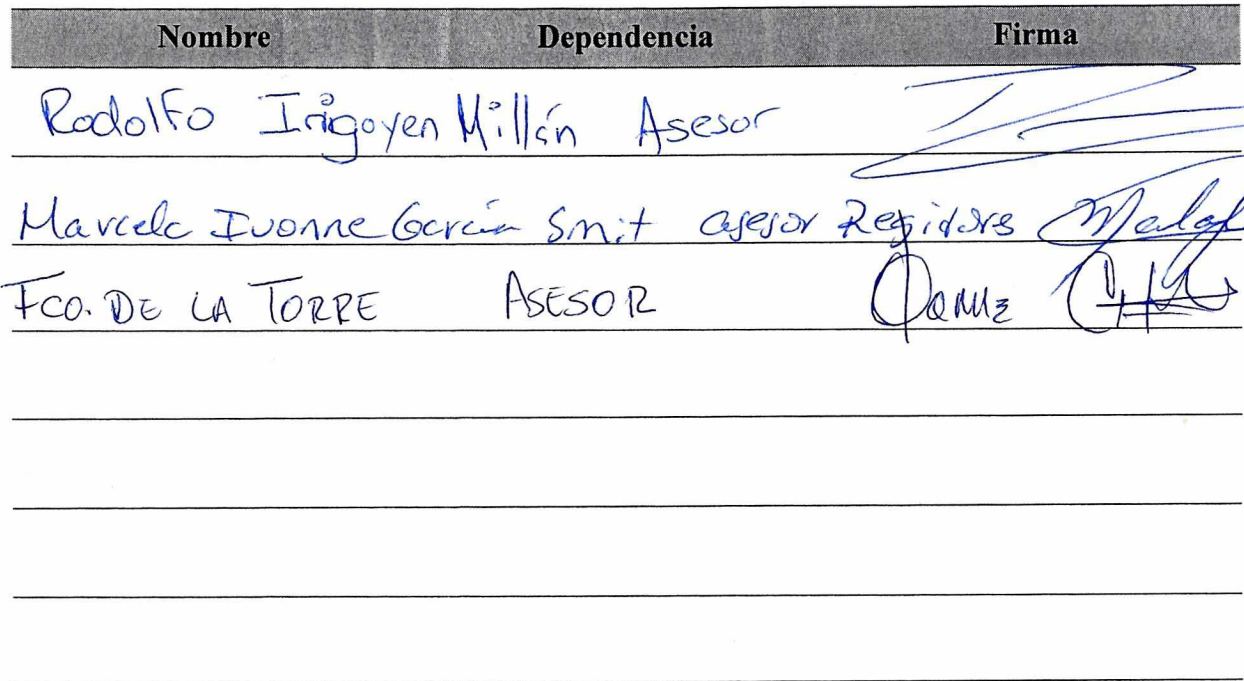 Nombre Dependencia Firma
Rodolfo Irigoyen Millán Asesor
Marcela Ivonne García Smit asesor Regidors
FCO. DE LA TORRE ASESOR